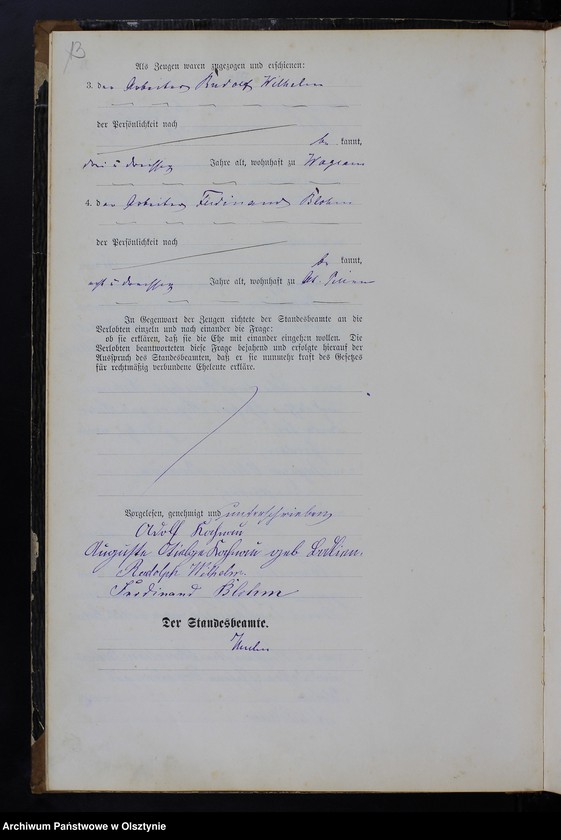 13
Als Zeugen waren zugezogen und erschienen:
3. der Arbeiter Rudolf Wilhelm
der Persönlichkeit nach
be kannt,
drei u dreißig Jahre alt, wohnhaft zu
4. der Arbeiter Ferdinand Blohm
der Persönlichkeit nach
be kannt,
acht u dreißig Jahre alt, wohnhaft zu
In Gegenwart der Zeugen richtete der Standesbeamte an die
Verlobten einzeln und nach einander die Frage:
ob sie erklären, daß sie die Ehe mit einander eingehen wollen. Die
Verlobten beantworteten diese Frage bejahend und erfolgte hierauf der
Ausspruch des Standesbeamten, daß er sie nunmehr kraft des Gesetzes
für rechtmäßig verbundene Eheleute erkläre.
Vorgelesen, genehmigt und unterschrieben
Adolf
Auguste geb
Rudolph Wilhelm.
Ferdinand Blohm
Der Standesbeamte.
Archiwum Państwowe w Olsztynie